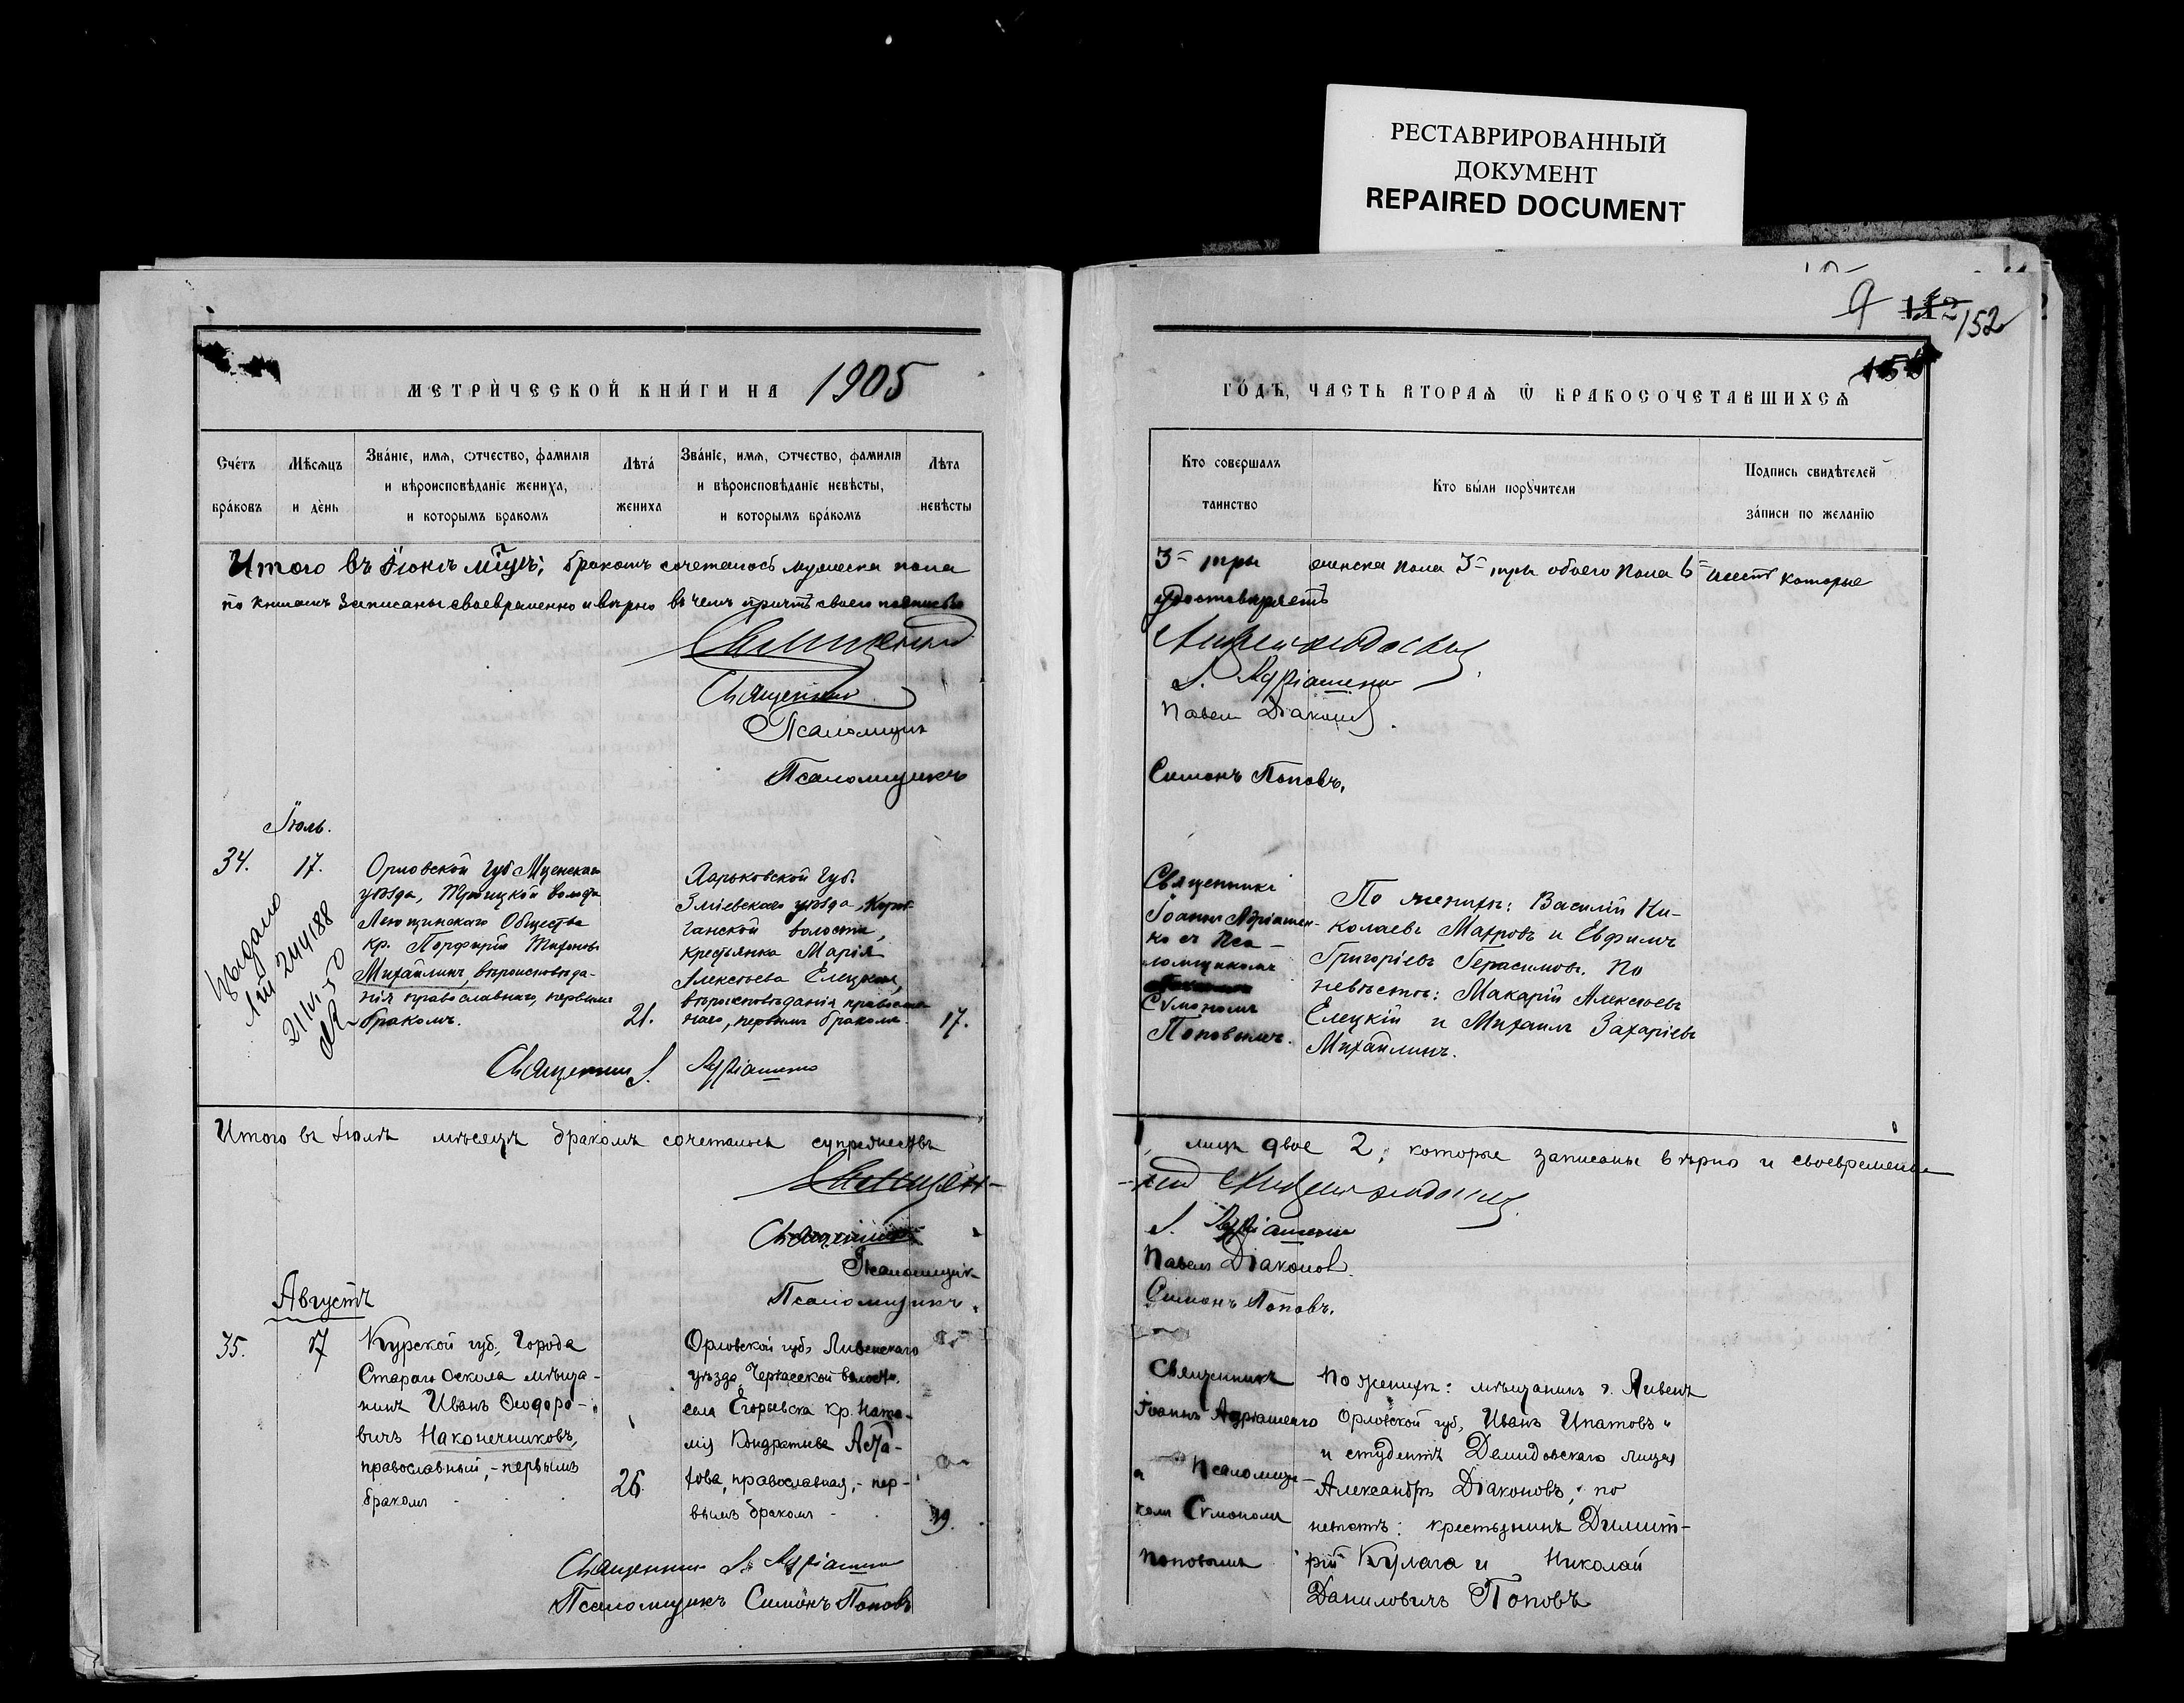 РЕСТАВРИРОВАННЫЙ
ДОКУМЕНТ
REPAIRED DOCUMENT
152
МЕТРИ́ЧЕСКОЙ КНИ́ГИ НА 1905
ГО́ДЪ, ЧАСТЬ ВТОРАѦ Ѡ БРАКОСОЧЕТАВШИХСѦ
Сче́тъ
бра́ковъ
Мѣ́сѧцъ
и де́нь
Зва́нїе, имѧ, отчество, фамилїѧ
и вѣроисповѣ́данїе жениха,
и которымъ бракомъ
Лѣта́
жениха
Зва́нїе, имѧ, отчество, фамилїѧ
и вѣроисповѣ́данїе невѣ́сты,
и которымъ бра́комъ
Лѣта
невѣ́сты
Кто совершалъ
таинство
Кто бы́ли порꙋчители
Подпись свидѣ́телей
за́писи по желанїю
Итого въ Іюнѣ м̃цѣ; бракомъ сочеталось мужеска пола 3= три женска пола 3= три обоего пола 6= шесть которые
по книгамъ записаны своевременно и вѣрно въ чемъ причтъ своею подписью удостовѣряетъ
Священникъ І. Адріашенко
Псаломщикъ Павелъ Діаконовъ.
Псаломщикъ Симонъ Поповъ.
Іюль.
34.
17.
Орловской губ Мценскаго
уѣзда, волости
Общества
кр. Порфирій Тихоновъ
Михайлинъ, вѣроисповѣда-
нія православнаго, первымъ
бракомъ.
21.
Харьковской губ.
Зміевскаго уѣзда
волости,
крестьянка Марія
Алексѣева Елецкая,
вѣроисповѣданія православ-
наго, первымъ бракомъ.
17.
Священникъ
Іоаннъ Адріашен-
ко съ Пса-
ломщикомъ
Сѵмономъ
Поповымъ.
По женихѣ: Василій Ни-
колаевъ Махровъ и Евфимъ
Григоріевъ Герасимовъ. По
невѣстѣ: Макарій Алексѣевъ
Елецкій и Михаилъ Захаріевъ
Михайлинъ.
Выдано
244188
21/VI-50
Священникъ І. Адріашенко
Итого въ Іюлѣ мѣсяцѣ бракомъ сочеталось супружествъ 1, лицъ двое 2; которые записаны вѣрно и своевременно
Священникъ І. Адріашенко
Псаломщикъ Павелъ Діаконов.
Псаломщикъ Симонъ Поповъ.
Августъ
35.
17
Курской губ., Города
Стараго Оскола мѣща-
нинъ Иванъ Ѳеодоро-
вичъ Наконечниковъ,
православный, - первымъ
бракомъ
26.
Орловской губ. Ливенскаго
уѣзда, волости,
села Егорьевска кр. Ната-
лія Кондратьева Ага-
това, православная, - пер-
вымъ бракомъ
19.
Священникъ
Іоаннъ Адріашенко
и Псаломщи-
комъ Сѵмономъ
Поповымъ
По женихѣ: мѣщанинъ г. Ливенъ
Орловской губ., Иванъ Ипатовъ
и студентъ Демидовскаго лицея
Александръ Діаконовъ; по
невѣстѣ: крестьянинъ Димит-
рій Кулага и Николай
Даниловичъ Поповъ
Священникъ І. Адріашенко
Псаломщикъ Симонъ Поповъ